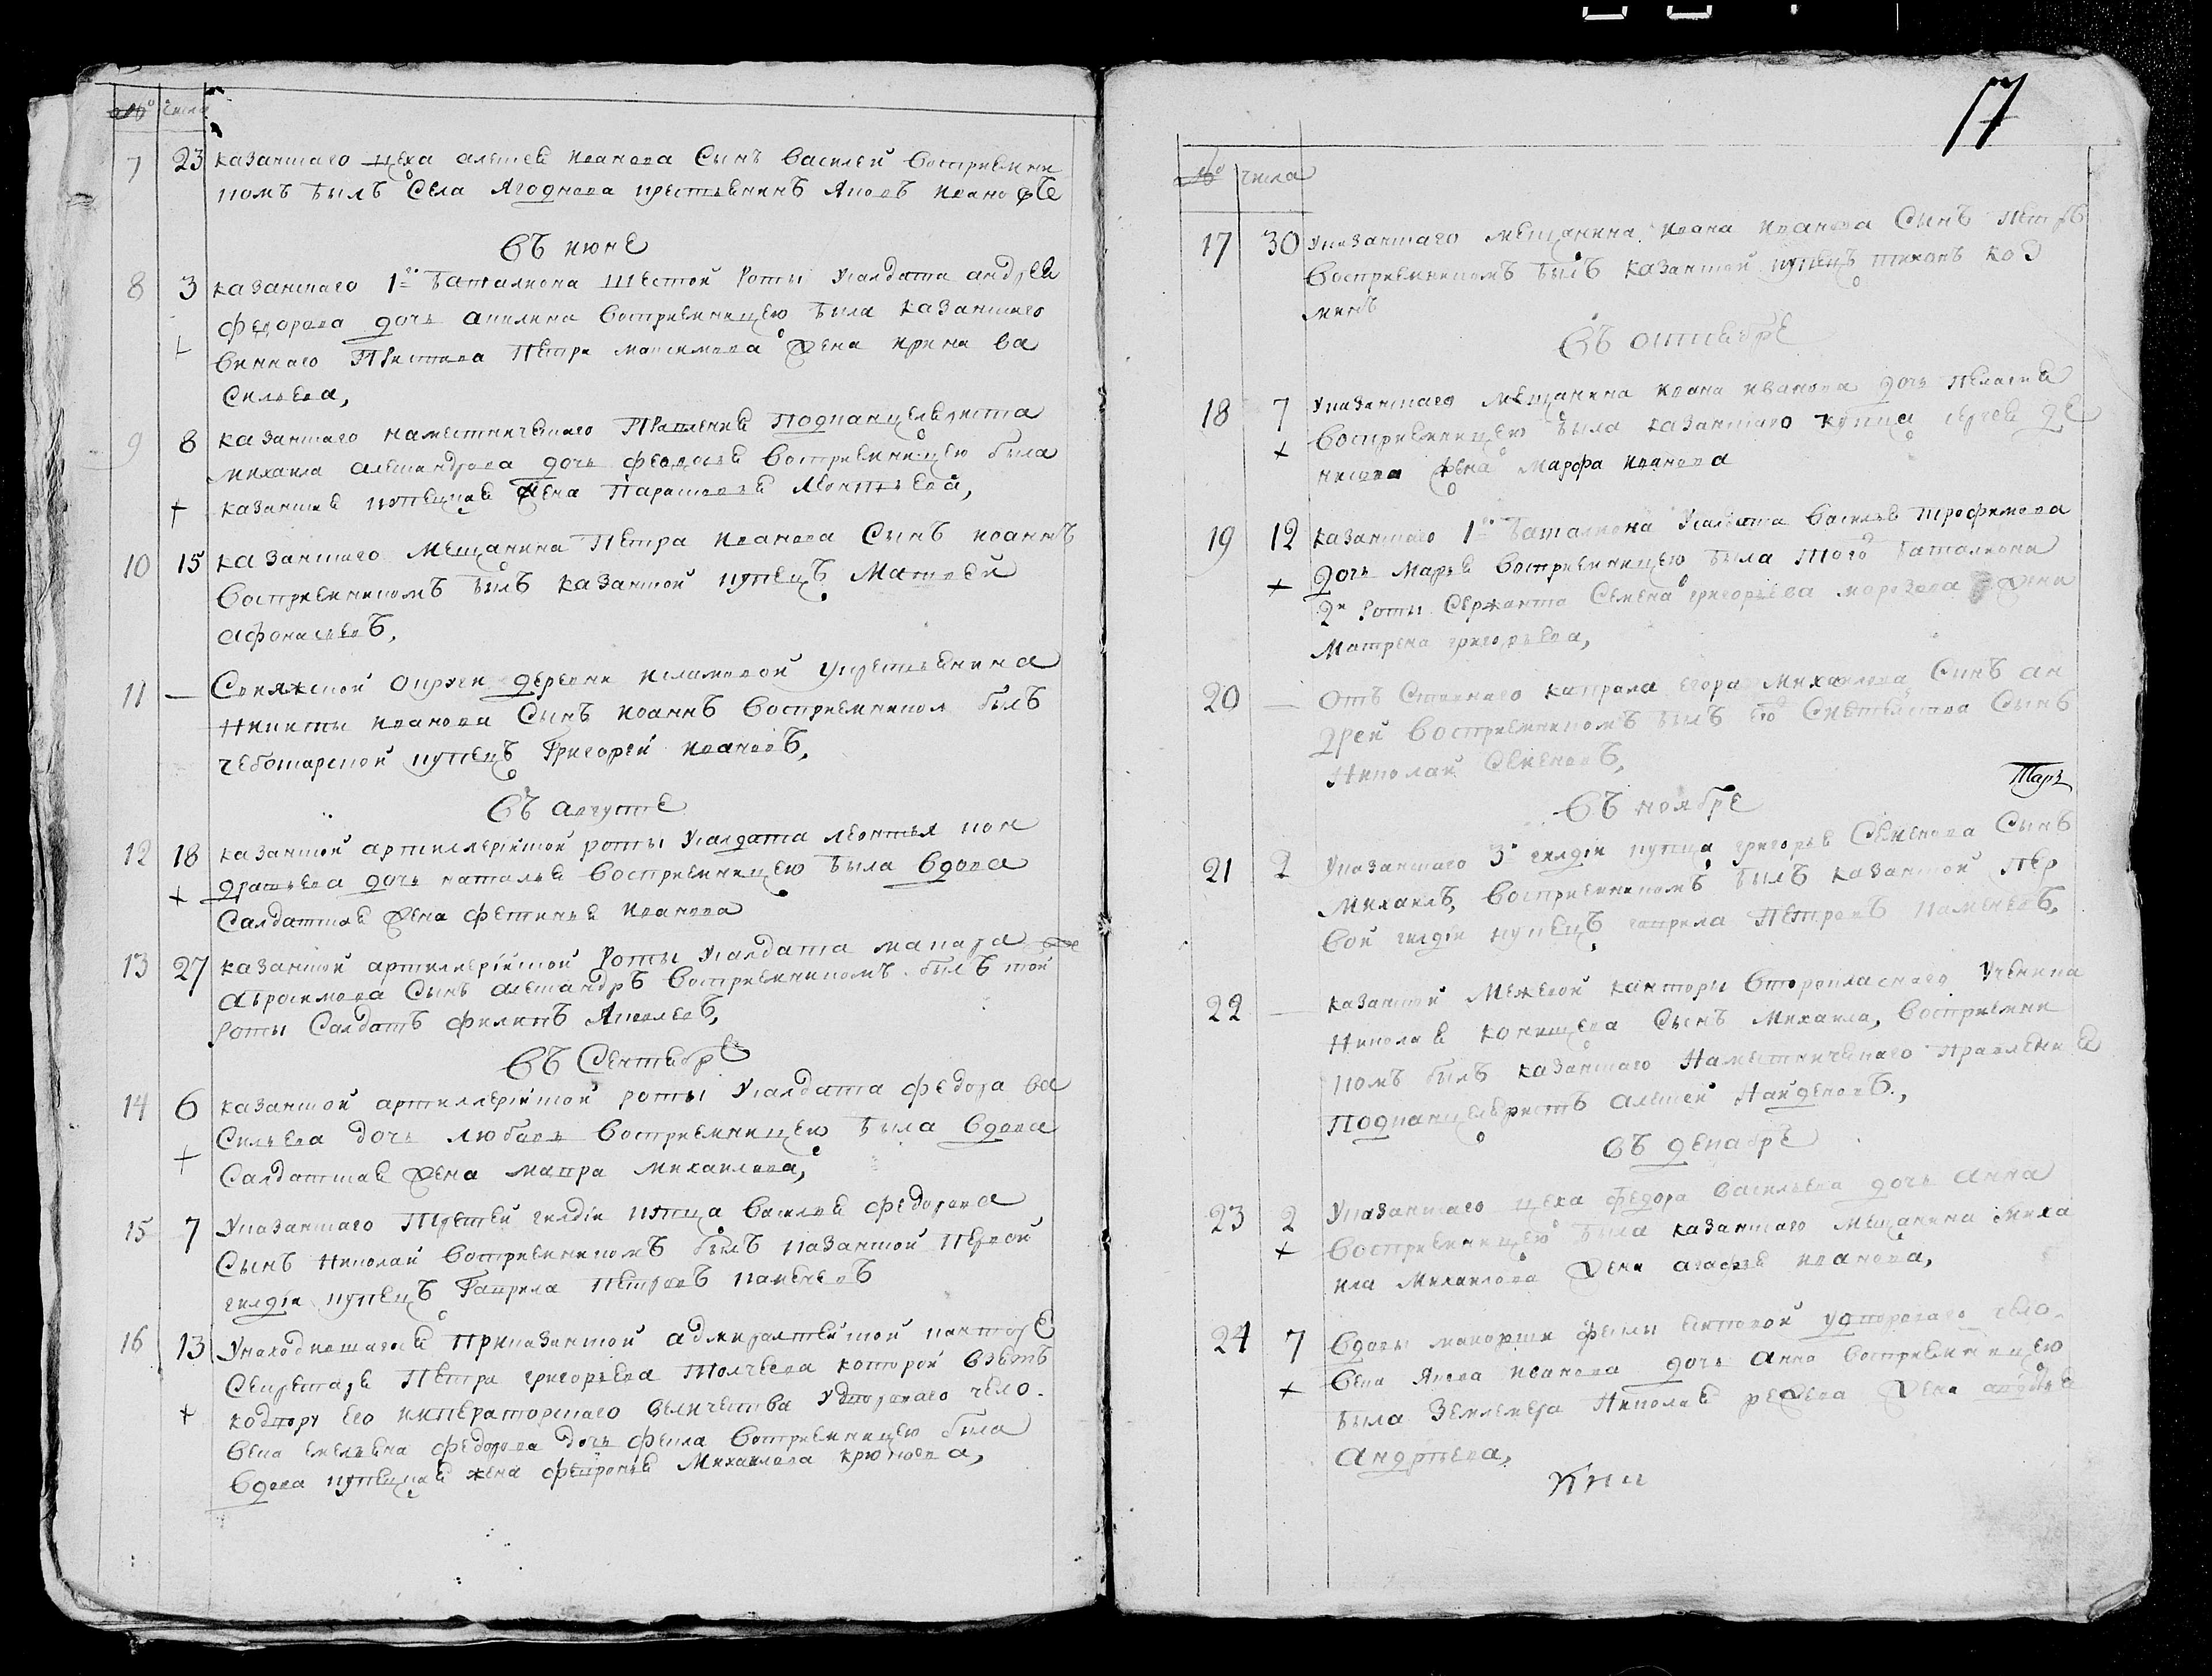 № числа
7 23 казанскаго цеха алексея иванова Сынъ василей восприемни
комъ былъ Села Ягоднова крестьянинъ Яковъ ивановъ
Въ июне
8 3 казанскаго 1го баталиона шестой роты Усалдата андрея
федорова дочь акилина восприемницею была казанскаго
виннаго Пристава Петра максимова жена ирина ва
сильева,
9 8 казанскаго наместническаго Правления Подканцеляриста
михаила александрова дочь федосья восприемницею была
+ казанская купецкая жена Парасковья Леонтьева,
10 15 казанскаго мещанина Петра иванова Сынъ иоаннъ
восприемникомъ былъ казанской купецъ Матвей
афонасьевъ,
11 — Свияжской округи деревни исламовой Укрестьянина
Никиты иванова Сынъ иоаннъ восприемникомъ былъ
чебоксарской купецъ Григорей ивановъ,
Въ августе
12 18 казанской артиллерийской роты Усалдата леонтья кон
+ дратьева дочь наталья восприемницею была вдова
Салдатская жена фетинья иванова
13 27 казанской артиллерийской Роты Усалдата макара
абросимова Сынъ александръ восприемникомъ былъ той
роты Салдатъ филипъ Яковлевъ,
Въ Сентябре
14 6 казанской артиллерийской роты Усалдата федора ва
+ сильева дочь любовь восприемницею была вдова
Салдатская жена мавра михаилова,
15 7 Указанскаго Третей гилдіи купца василья федорова
Сынъ николай восприемникомъ былъ казанской первой
гилдіи купецъ Гаврила Петровъ каменевъ
16 13 Унаходившагося Приказанской адмиралтейской канторе
Секретаря Петра григорьева Толчеева которой взятъ
+ кодвору Его императорскаго величества Удвороваго чело-
века емельяна федорова дочь фекла восприемницею была
вдова купецкая жена феѵронья Михаилова крюкова,
17
№ числа
17 30 Указанскаго мещанина ивана иванова Сынъ петръ
восприемникомъ былъ казанской купецъ тихонъ коз
минъ
Въ октябре
18 7 Указанскаго мещанина ивана иванова дочь пелагея
+ восприемницею была казанскаго купца сергея де
нисова жена Марфа иванова
19 12 казанскаго 1го баталиона Усалдата василья трофимова
+ дочь Марья восприемницею была того баталиона
2й роты Сержанта Семена григорьева морозова жена
Матрена григорьева,
20 — Отъ Ставнаго капрала егора Михаилова Сынъ ан
дрей восприемникомъ былъ Сынъ
Николай Семеновъ,
Въ ноябре
21 2 Указанскаго 3й гилдіи купца григорья Семенова Сынъ
Михаилъ, восприемникомъ былъ казанской пер
вой гилдіи купецъ гаврила Петровъ каменевъ,
22 — казанской Межевой канторы второкласнаго Ученика
Николая конищева Сынъ Михаила, восприемни
комъ былъ казанскаго Наместническаго правления
Подканцеляристъ алексей Найденовъ,
Въ декабре
23 2 Указанскаго цеха федора васильева дочь анна
+ восприемницею была казанскаго мещанина миха
ила Михаилова жена агафья иванова,
24 7 Вдовы маиорши феклы Удвороваго чело-
+ века Якова иванова дочь анна восприемницею
была землемера Николая жена
андреева,